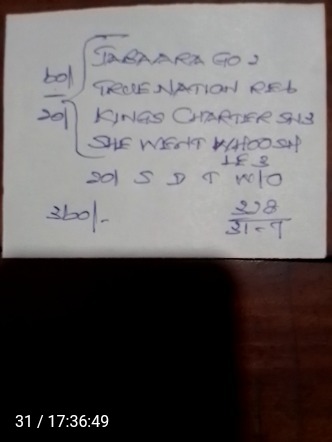 60/
20/
JABAARA GO 2
TRUE NATION RE6
KINGS CHARTER SH3
SHE WENT WHOOSH
LE 3
20/ S D T W/O
360/-
328
31-7
31 / 17:36:49